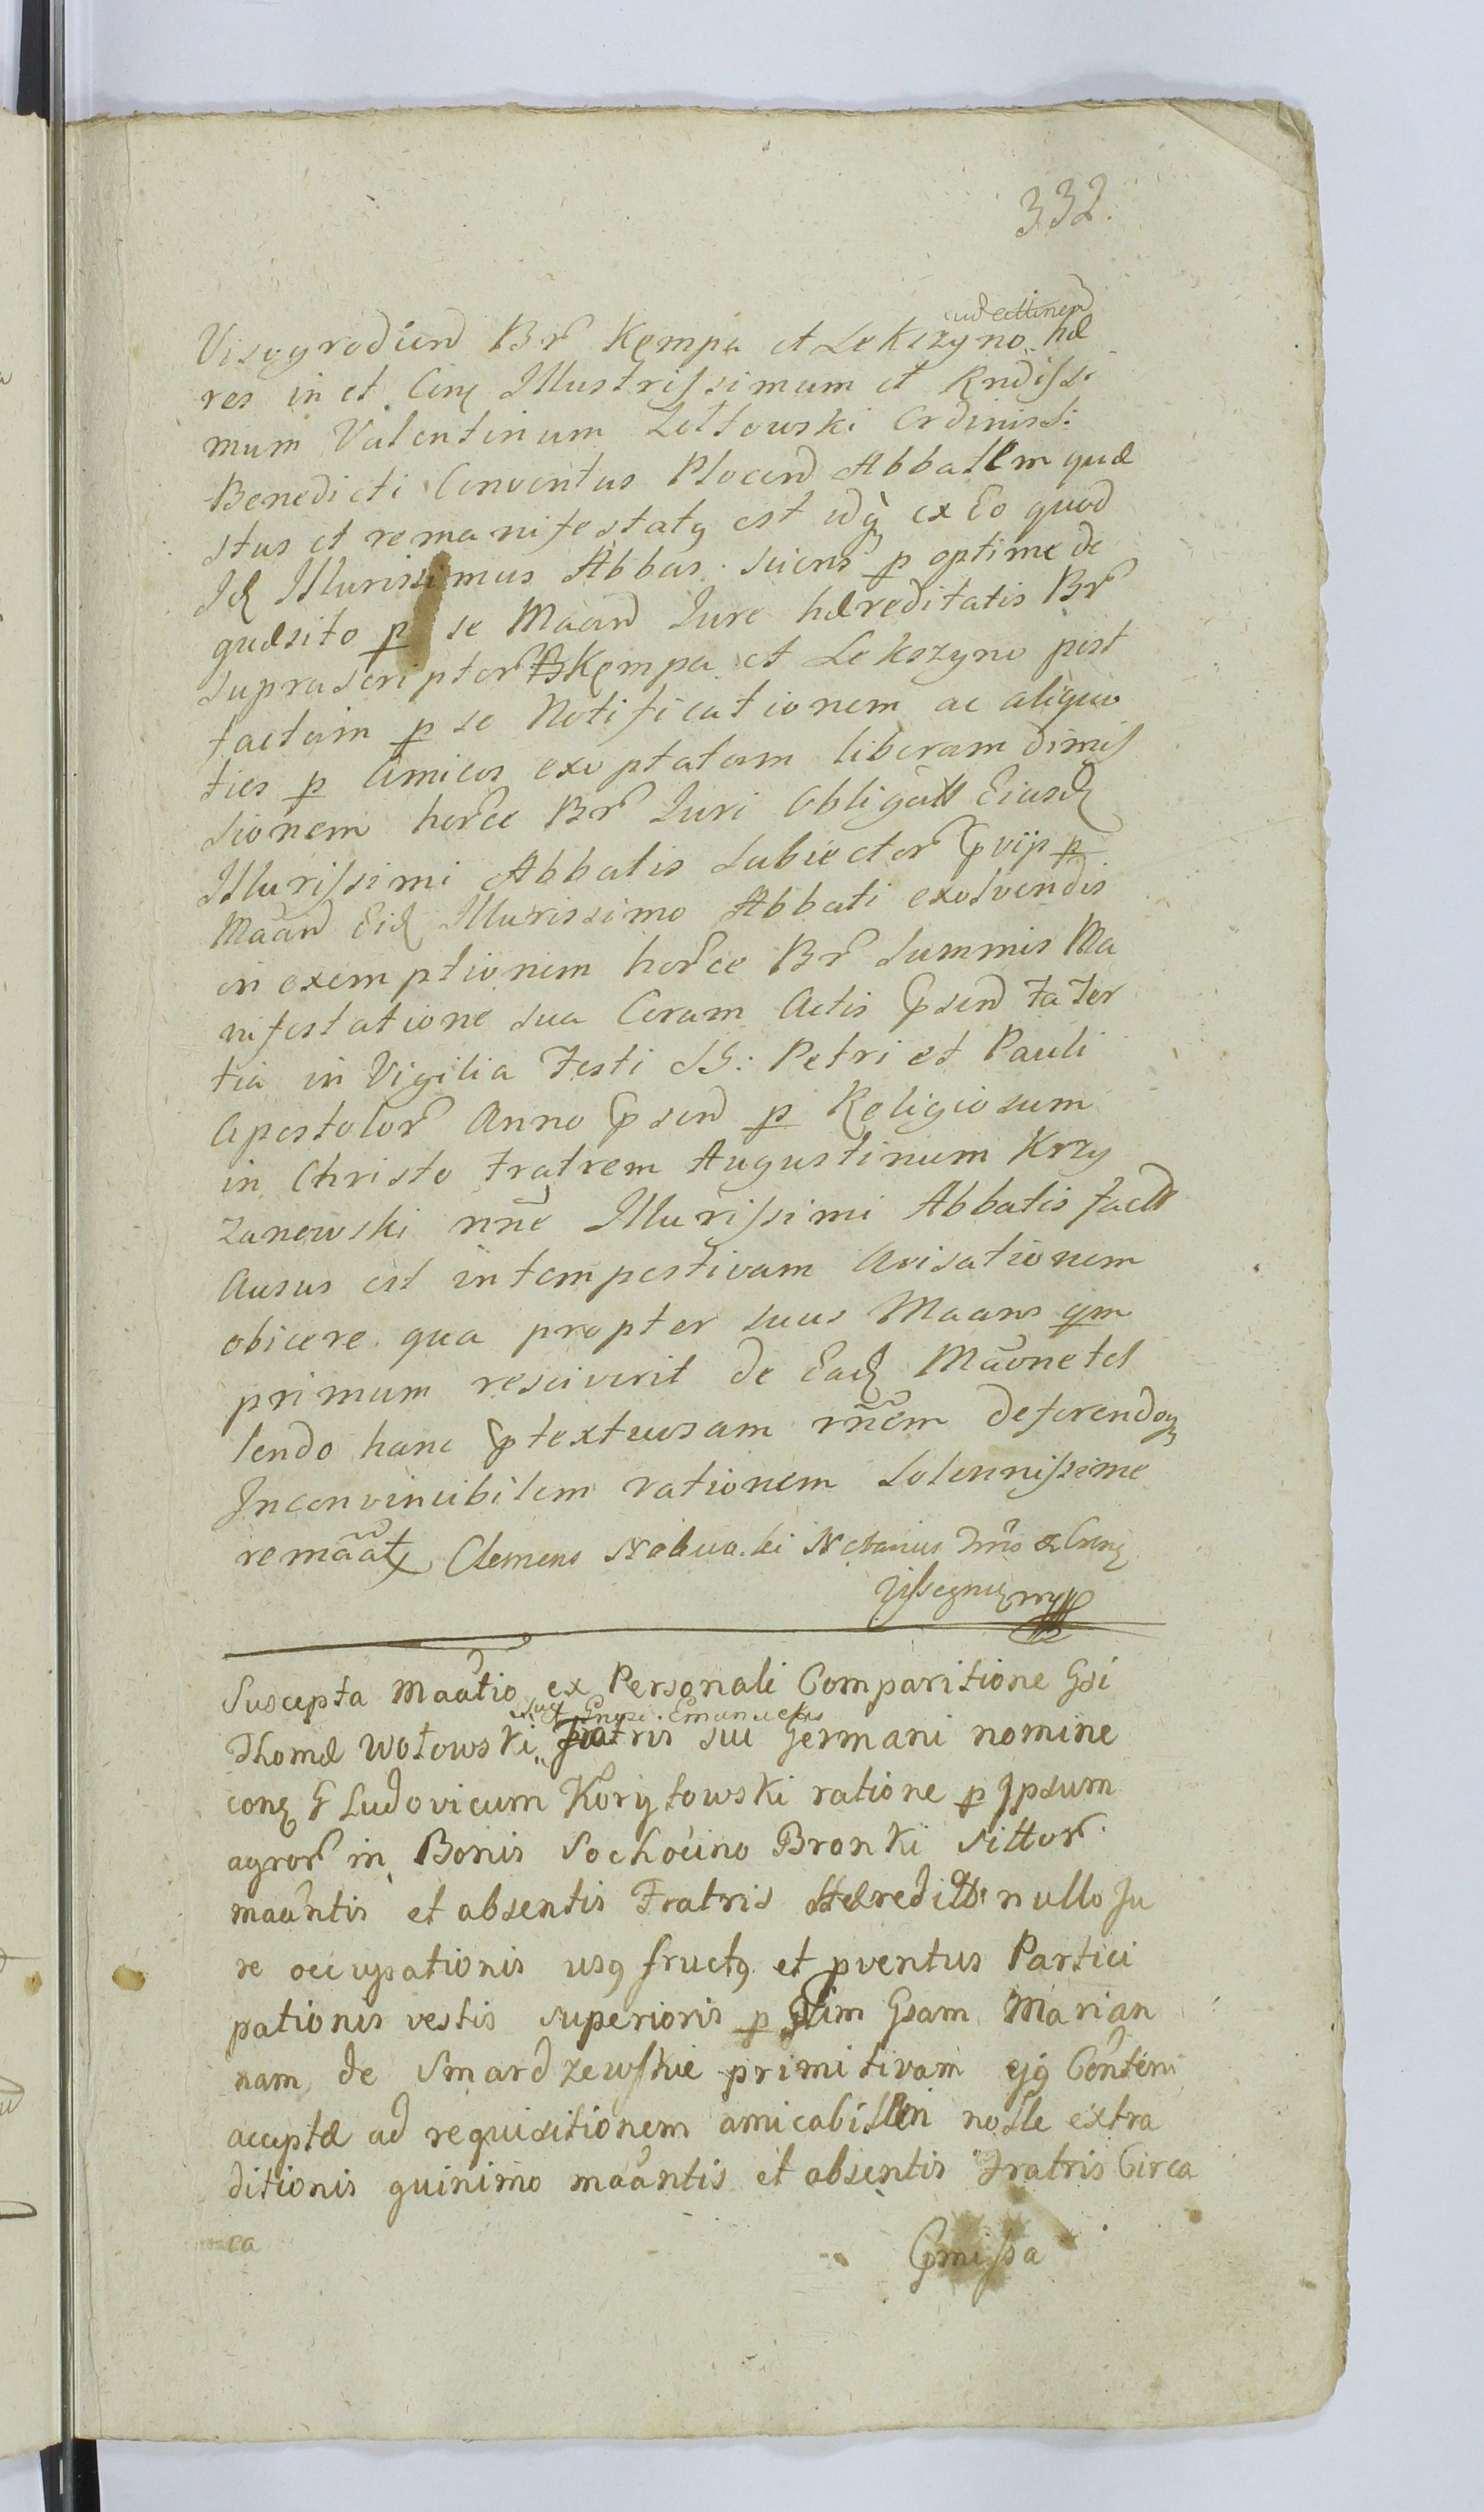 332.
ad ettinend
Visogrodien Br Kempa et Lekszyno hæ
res in et Cirq Illustrissimum et Rndissi
mum Valentinum Zołtowski Ordinis S:
Benedicti Conventus Plocen Abbatem quæ
stus et remanifestatq est idq ex Eo quod
Id Illurissimus Abbas sciens p optime de
quæsito p se Maan Jure hæreditatis Br
supra scriptor Kempa et Lekszyno post
factam p se Notificationem ac aliquo
ties p Amicos exoptatam liberam dimis
sionem horce Br Juri Obligatt Eiusd
Illurissimi Abbatis Subiector pviis p
Maan Eid Illurissimo Abbati exolvendis
in exemptionem horce Br Summis Ma
nifestatione sua Coram Actis psen Fa Ter
tia in Vigilia Festi SS: Petri et Pauli
Apostolor Anno psen p Religiosum
in Christo Fratrem Augustinum Krzy
zanowski nne Illurissimi Abbatis fact
Ausus est intempestivam Avisationem
obicere qua propter suus Maans qm
primum resciverit de Ead Maone tol
lendo hanc ptextuosam rnem deferendoq
Inconvincibilem rationem Solennissime
remaatq Clemens Notarius
Suscepta Maatio ex Personali Comparitione Gsi
Emanuelis
Thomæ Wołowski Fratris sui Germani nomine
conq G Ludovicum Koryłowski ratione p Ipsum
agror in Bonis Sochocino Bronki sittor
maantis et absentis Fratris Hæreditt nullo Ju
re occupationis usq fructq et pventus Partici
pationis vestis superioris p Gsam Marian
nam de Smardzewskie primitivam ejq Conten
acceptæ ad requisitionem amicabilem nosle extra
ditionis quinimo maantis et absentis Fratris Circa
ca
Pmissa